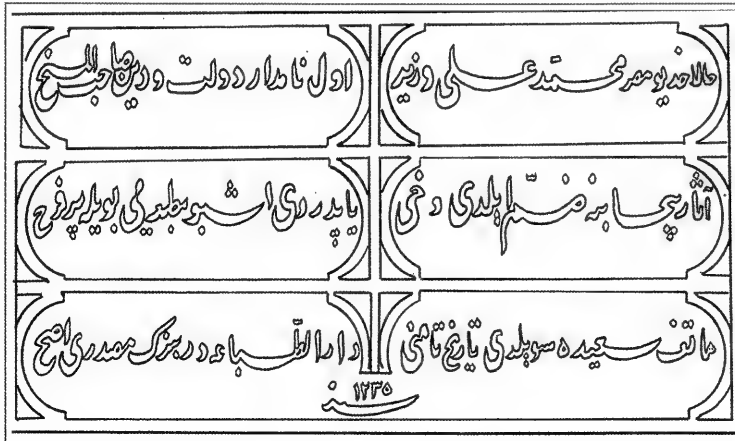 حالا خديو مصر محمّد على وزير
اول نامدار دولت و دين صاحب المنح
آثار بيحسابنه ضمّ ايلدى دخى
ياپدردى اشبو مطبعه يى بويله پر فرح
هاتف سعيده سويلدى تاريخ تامنى
دار الطّباعه در مصدرى اصح
سنه ١٢٣٥